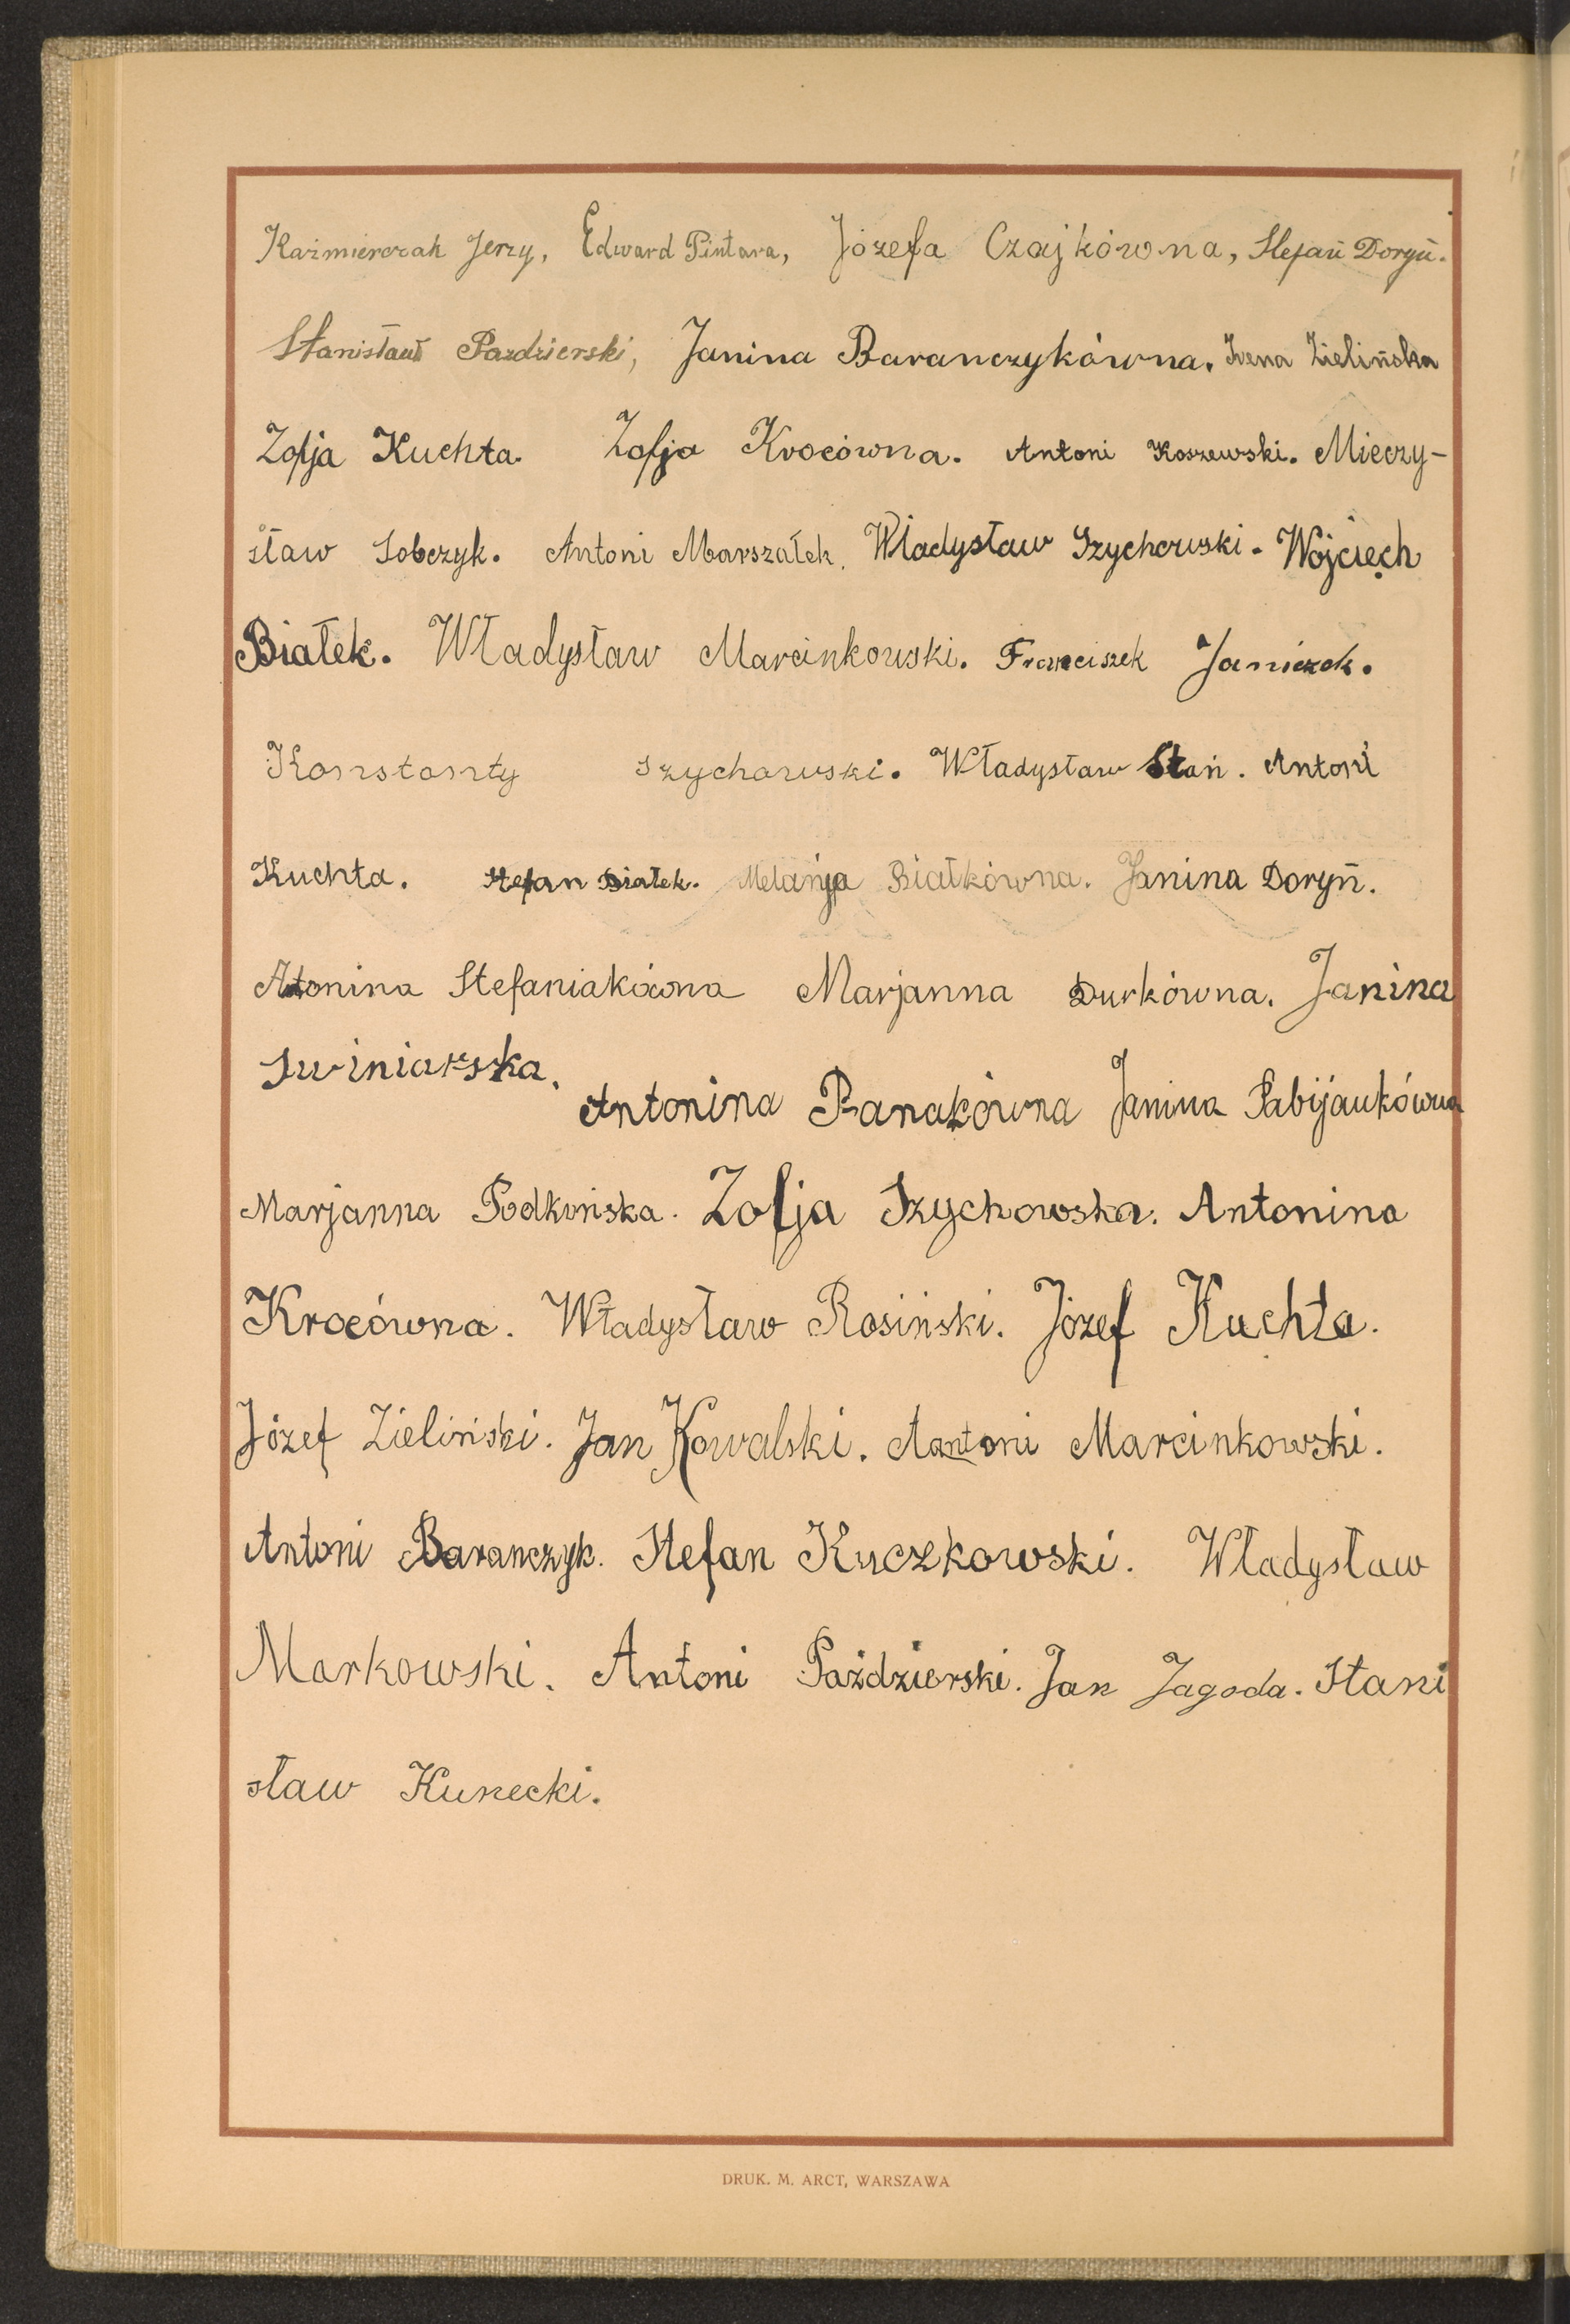 Kaźmierczak Jerzy, Edward Pintara, Józefa Czajkówna, Stefan Doryń.
Stanisław Pazdzierski, Janina Baranczykówna. Irena Zielińska
Zofja Kuchta. Zofja Krocówna. Antoni Koszewski. Mieczy-
sław Sobczyk. Antoni Marszałek. Władysław Szychowski. Wojciech
Białek. Władysław Marcinkowski. Franciszek Janiczek.
Konstanty Szychowski. Władysław Stań. Antoni
Kuchta. Stefan Białek. Melanja Białkówna. Janina Doryń.
Atonina Stefaniakówna Marjanna Durkówna. Janina
Swiniarska. Antonina Banakówna Janina Pabijankówna
Marjanna Podkońska. Zofja Szychowska. Antonina
Krocówna. Władysław Rosiński. Józef Kuchta.
Józef Zieliński. Jan Kowalski. Antoni Marcinkowski.
Antoni Baranczyk. Stefan Kuczkowski. Władysław
Markowski. Antoni Paździerski. Jan Jagoda. Stani
sław Kunecki.
DRUK. M. ARCT, WARSZAWA